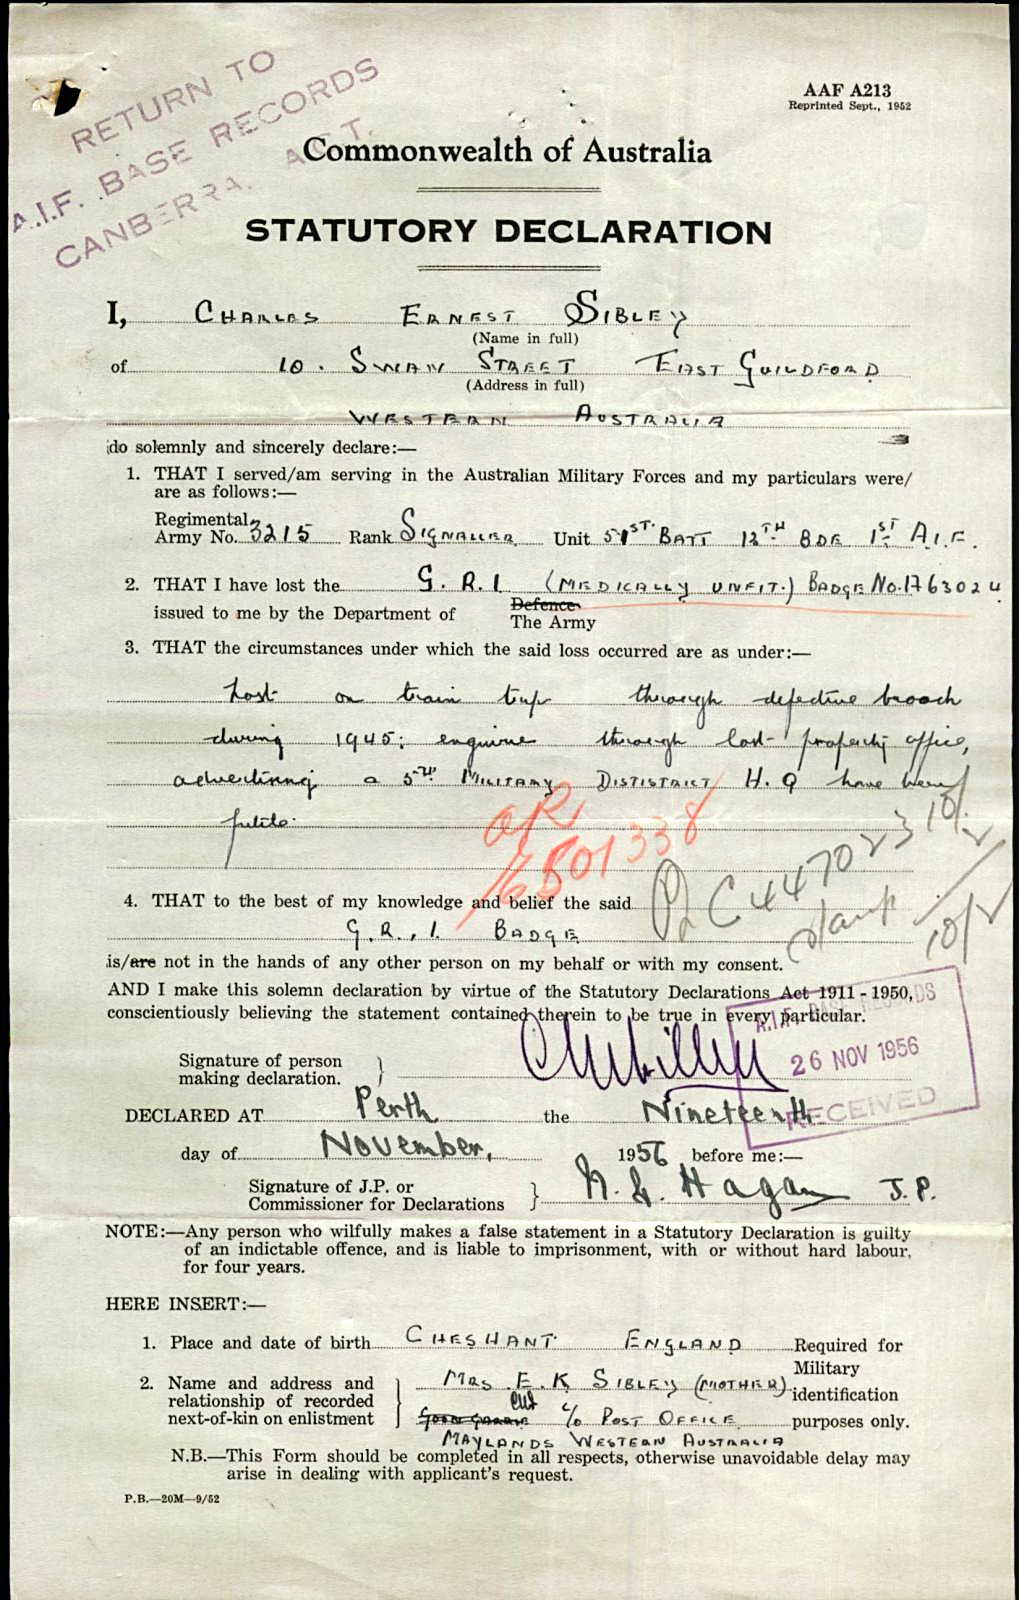 RETURN TO
A.I.F. BASE RECORDS
CANBERRA. A.C.T.
AAF A213
Reprinted Sept., 1952
Commonwealth of Australia
STATUTORY DECLARATION
I, CHARLES ERNEST SIBLEY
(Name in full)
of 10. SWAN STREET EAST GUILDFORD
(Address in full)
WESTERN AUSTRALIA
do solemnly and sincerely declare:—
1. THAT I served/am serving in the Australian Military Forces and my particulars were/
are as follows:—
Regimental
Army No. 3215 Rank SIGNALLER Unit 51ST. BATT 13TH BDE 1ST A.I.F.
2. THAT I have lost the G. R. I (MEDICALLY UNFIT.) BADGE No. 1763024
issued to me by the Department of Defence
The Army
3. THAT the circumstances under which the said loss occurred are as under:—
Lost on train trip through defective broach
during 1945; enquirie through lost property office,
advertising a 5TH MILITARY DISTISTRICT H. Q have been
futile.
6501338
C447023 10/2
stamp 10/2
4. THAT to the best of my knowledge and belief the said
G. R., I. BADGE
is/are not in the hands of any other person on my behalf or with my consent.
AND I make this solemn declaration by virtue of the Statutory Declarations Act 1911 - 1950,
conscientiously believing the statement contained therein to be true in every particular.
A.I.F. BASE RECORDS
26 NOV 1956
RECEIVED
Signature of person
making declaration. } CESibley
DECLARED AT Perth the Nineteenth
day of November, 1956 before me:—
Signature of J.P. or
Commissioner for Declarations } Hagan J.P.
NOTE:—Any person who wilfully makes a false statement in a Statutory Declaration is guilty
of an indictable offence, and is liable to imprisonment, with or without hard labour,
for four years.
HERE INSERT:—
1. Place and date of birth CHESHANT ENGLAND Required for
Military
identification
purposes only.
2. Name and address and
relationship of recorded
next-of-kin on enlistment } MRS E. K SIBLEY (MOTHER)
C/o POST OFFICE
MAYLANDS WESTERN AUSTRALIA
N.B.—This Form should be completed in all respects, otherwise unavoidable delay may
arise in dealing with applicant's request.
P.B.—20M—9/52